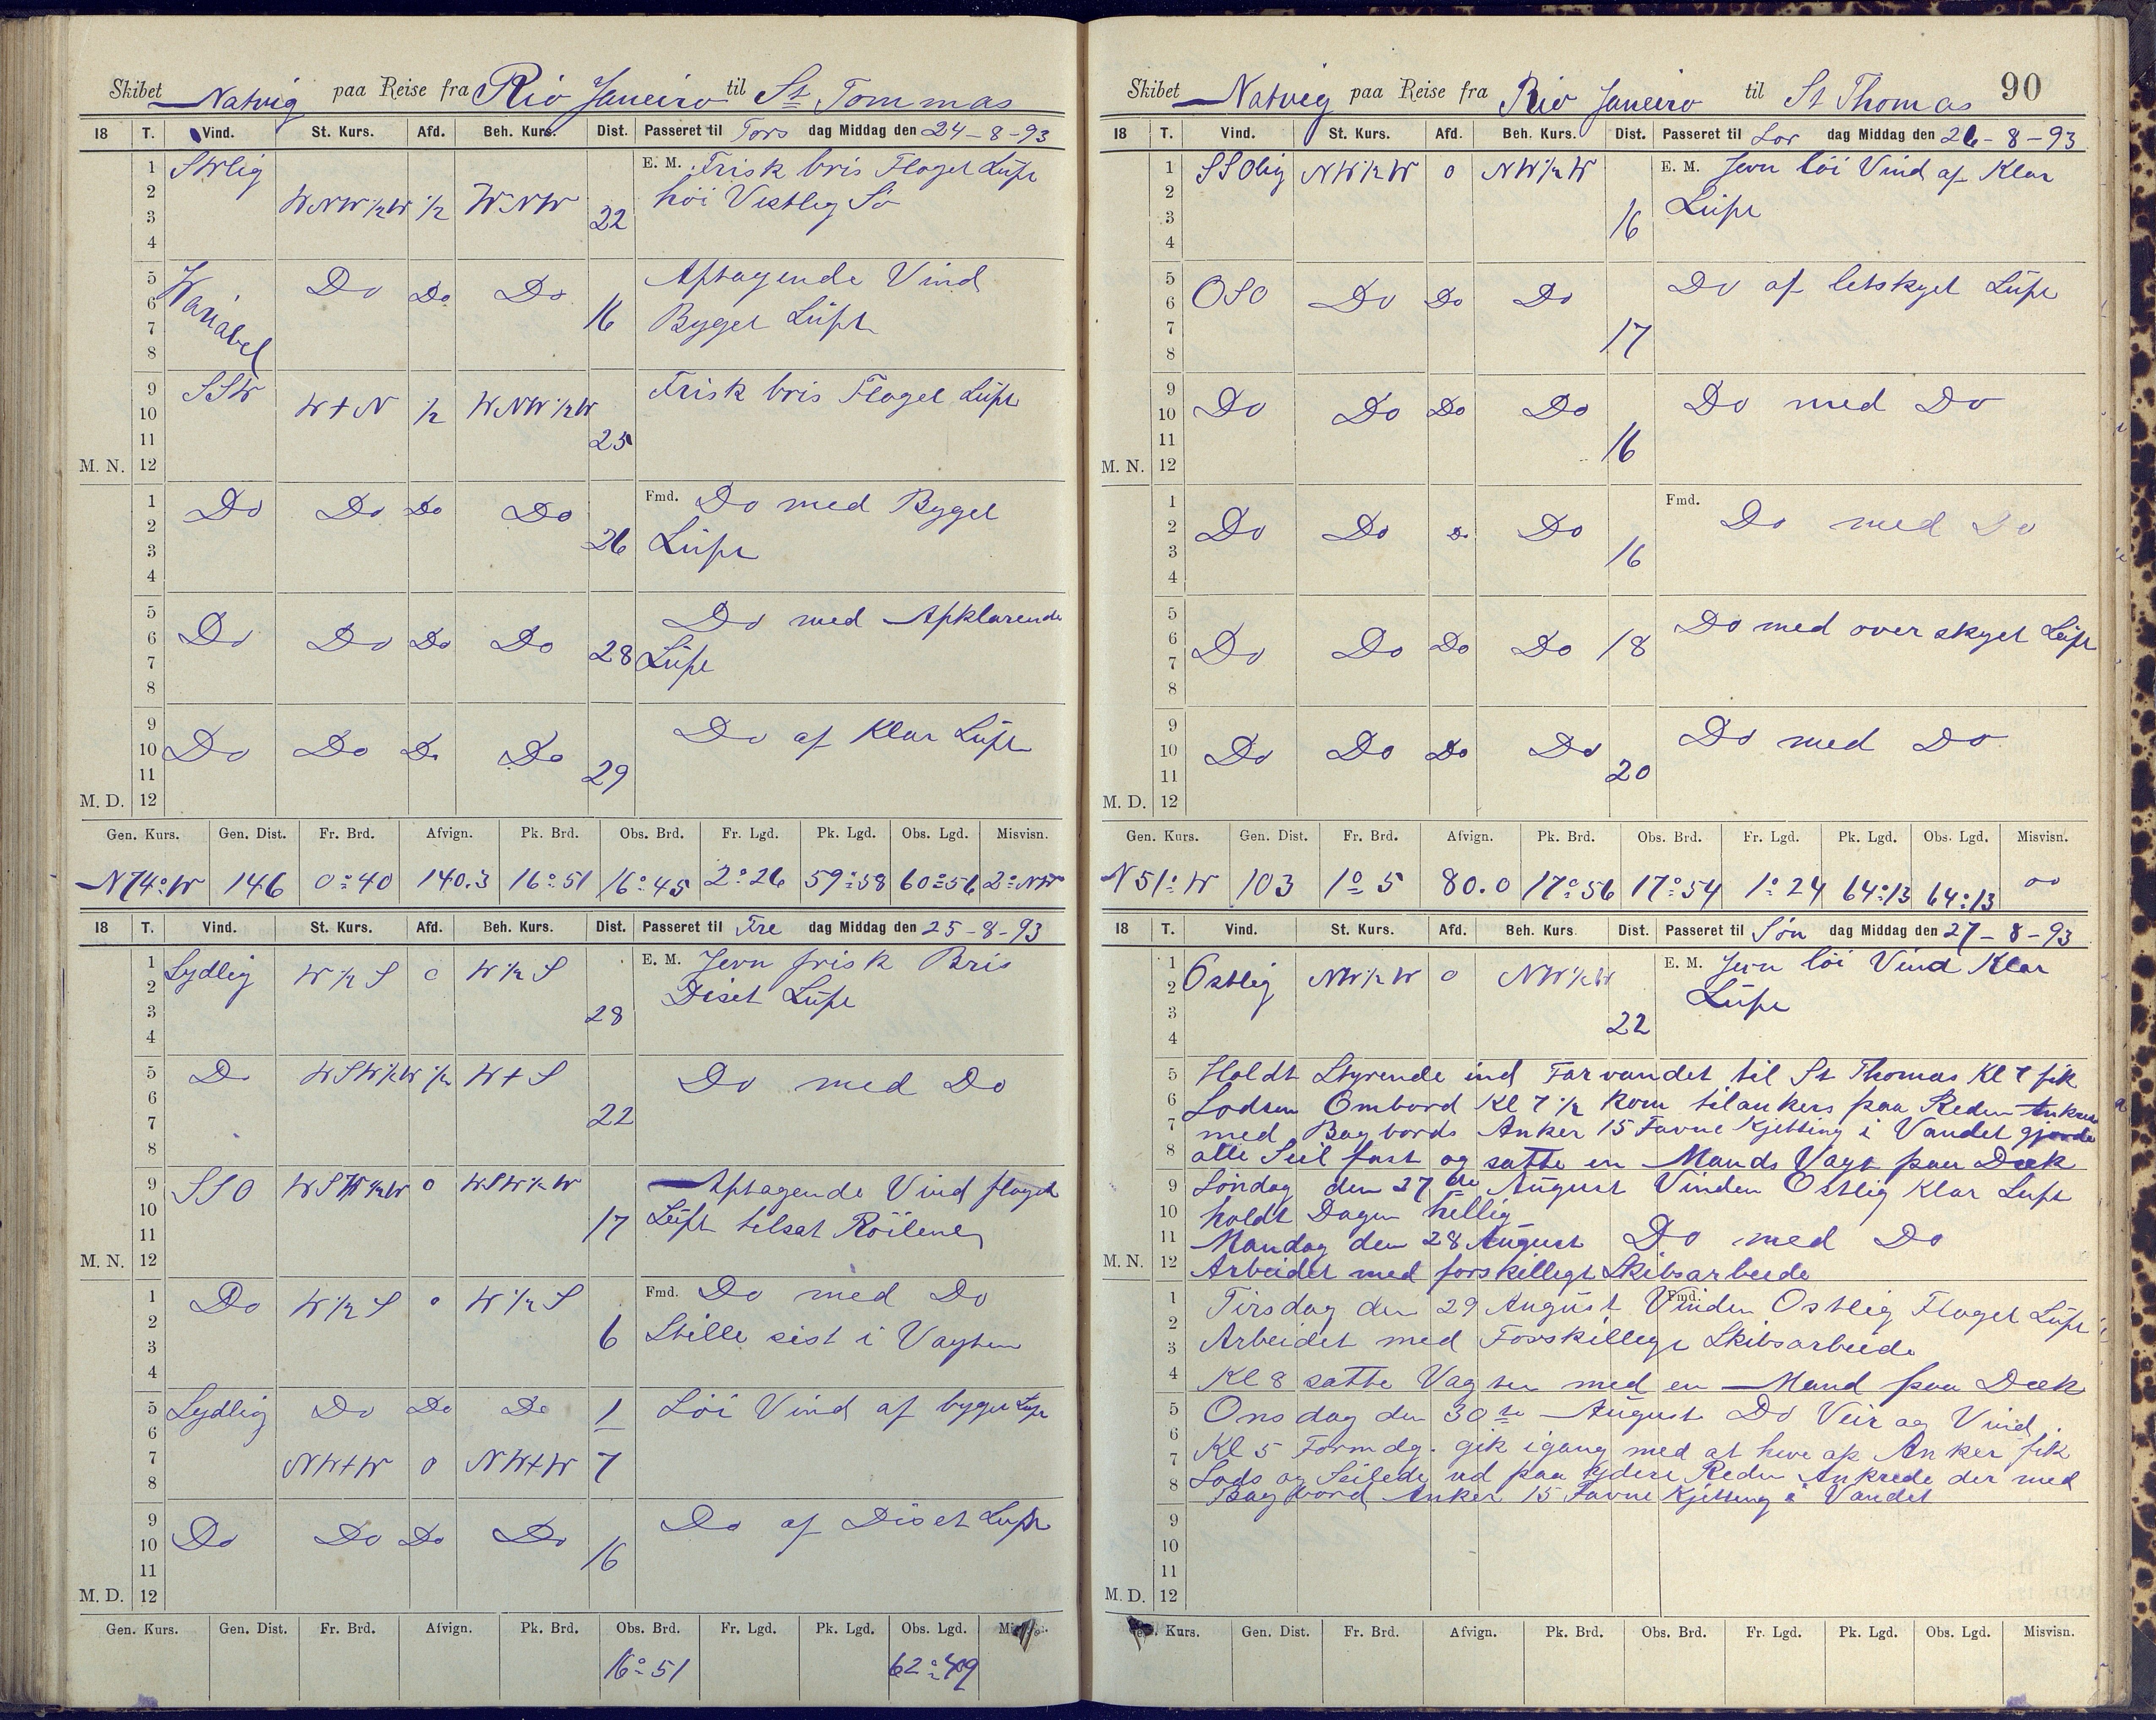 Skibet Natvig paa Reise fra Rio Janeiro til St Tommas
18 T. Vind. St. Kurs. Afd. Beh. Kurs. Dist. Passeret til Tors dag Middag den 24-8-93
1 2 3 4 SWlig WNW½W ½ WNW 22 E. M. Frisk bris Flaget Luft
höi Vestleg Sö
5 6 7 8 Wariabel Do Do Do 16 Aftagende Vind
Byget Luft
9 10 11 M. N. 12 SSW W+N ½ WNW½W 25 Frisk bris Flaget Luft
1 2 3 4 Do Do Do Do 26 Fmd. Do med Byget
Luft
5 6 7 8 Do Do Do Do 28 Do med Afklarende
Luft
9 10 11 M. D. 12 Do Do Do Do 29 Do af Klar Luft
Gen. Kurs. Gen. Dist. Fr. Brd. Afvign. Pk. Brd. Obs. Brd. Fr. Lgd. Pk. Lgd. Obs. Lgd. Misvisn.
N74°W 146 0°40 140.3 16°51 16°45 2°26 59°58 60°56 2°NW
18 T. Vind. St. Kurs. Afd. Beh. Kurs. Dist. Passeret til Fre dag Middag den 25-8-93
1 2 3 4 Sydlig W½S 0 W½S 28 E. M. Jevn frisk Bris
Diset Luft
5 6 7 8 Do WSW½W ½ W+S 22 Do med Do
9 10 11 M. N. 12 SSO WSW½W 0 WSW½W 17 Aftagende Vind flaget
Luft tilsat Röilene
1 2 3 4 Do W½S 0 W½S 6 Fmd. Do med Do
Stille sist i Vagten
5 6 Sydlig Do Do Do 1 Löi Vind af byget Luft
7 8 NW+W 0 NW+W 7
9 10 11 M. D. 12 Do Do Do Do 16 Do af Diset Luft
Gen. Kurs. Gen. Dist. Fr. Brd. Afvign. Pk. Brd. Obs. Brd. Fr. Lgd. Pk. Lgd. Obs. Lgd.
16°51 62°49
Skibet Natvig paa Reise fra Rio Janeiro til St Thomas 90
18 T. Vind. St. Kurs. Afd. Beh. Kurs. Dist. Passeret til Lor dag Middag den 26-8-93
1 2 3 4 SSOlig NW½W 0 NW½W 16 E. M. Jevn löi Vind af Klar
Luft
5 6 7 8 OSO Do Do Do 17 Do af letskyet Luft
9 10 11 M. N. 12 Do Do Do Do 16 Do med Do
1 2 3 4 Do Do Do Do 16 Fmd. Do med Do
5 6 7 8 Do Do Do Do 18 Do med over skyet Luft
9 10 11 M. D. 12 Do Do Do Do 20 Do med Do
Gen. Kurs. Gen. Dist. Fr. Brd. Afvign. Pk. Brd. Obs. Brd. Fr. Lgd. Pk. Lgd. Obs. Lgd. Misvisn.
N51°W 103 1°5 80.0 17°56 17°54 1°24 64°13 64°13 00
18 T. Vind. St. Kurs. Afd. Beh. Kurs. Dist. Passeret til Sön dag Middag den 27-8-93
1 2 3 4 Ostlig NW½W 0 NW½W 22 E. M. Jevn löi Vind Klar
Luft
5 Holdt Styrende ind Farvandet til St Thomas Kl 7 fik
6 Lodsen Ombord Kl 7½ kom tilankers paa Reden
7 med Bagbords Anker 15 Favne Kjetting i Vandet gjorde
8 alle Seil fast og satte en Mands Vagt paa Dæk
9 Söndag den 27de August Vinden Ostlig Klar Luft
10 holdt Dagen hellig
11 Mandag den 28 August Do med Do
M. N. 12 Arbeidet med forskilligt Skibsarbeide
1 Tirsdag den 29 August Vinden Ostlig Flaget Luft
Fmd.
2 3 Arbeidet med Forskilligt Skibsarbeide
4 Kl 8 satte Vagten med en Mand paa Dæk
5 Onsdag den 30te August Do Veir og Vind
6 7 Kl 5 Formdg. gik igang med at hive op Anker fik
8 Lods og Seilede ud paa ydere Reden Ankrede der med
Bagbord Anker 15 Favne Kjetting i Vandet
9
10
11
M. D. 12
Kurs. Gen. Dist. Fr. Brd. Afvign. Pk. Brd. Obs. Brd. Fr. Lgd. Pk. Lgd. Obs. Lgd. Misvisn.